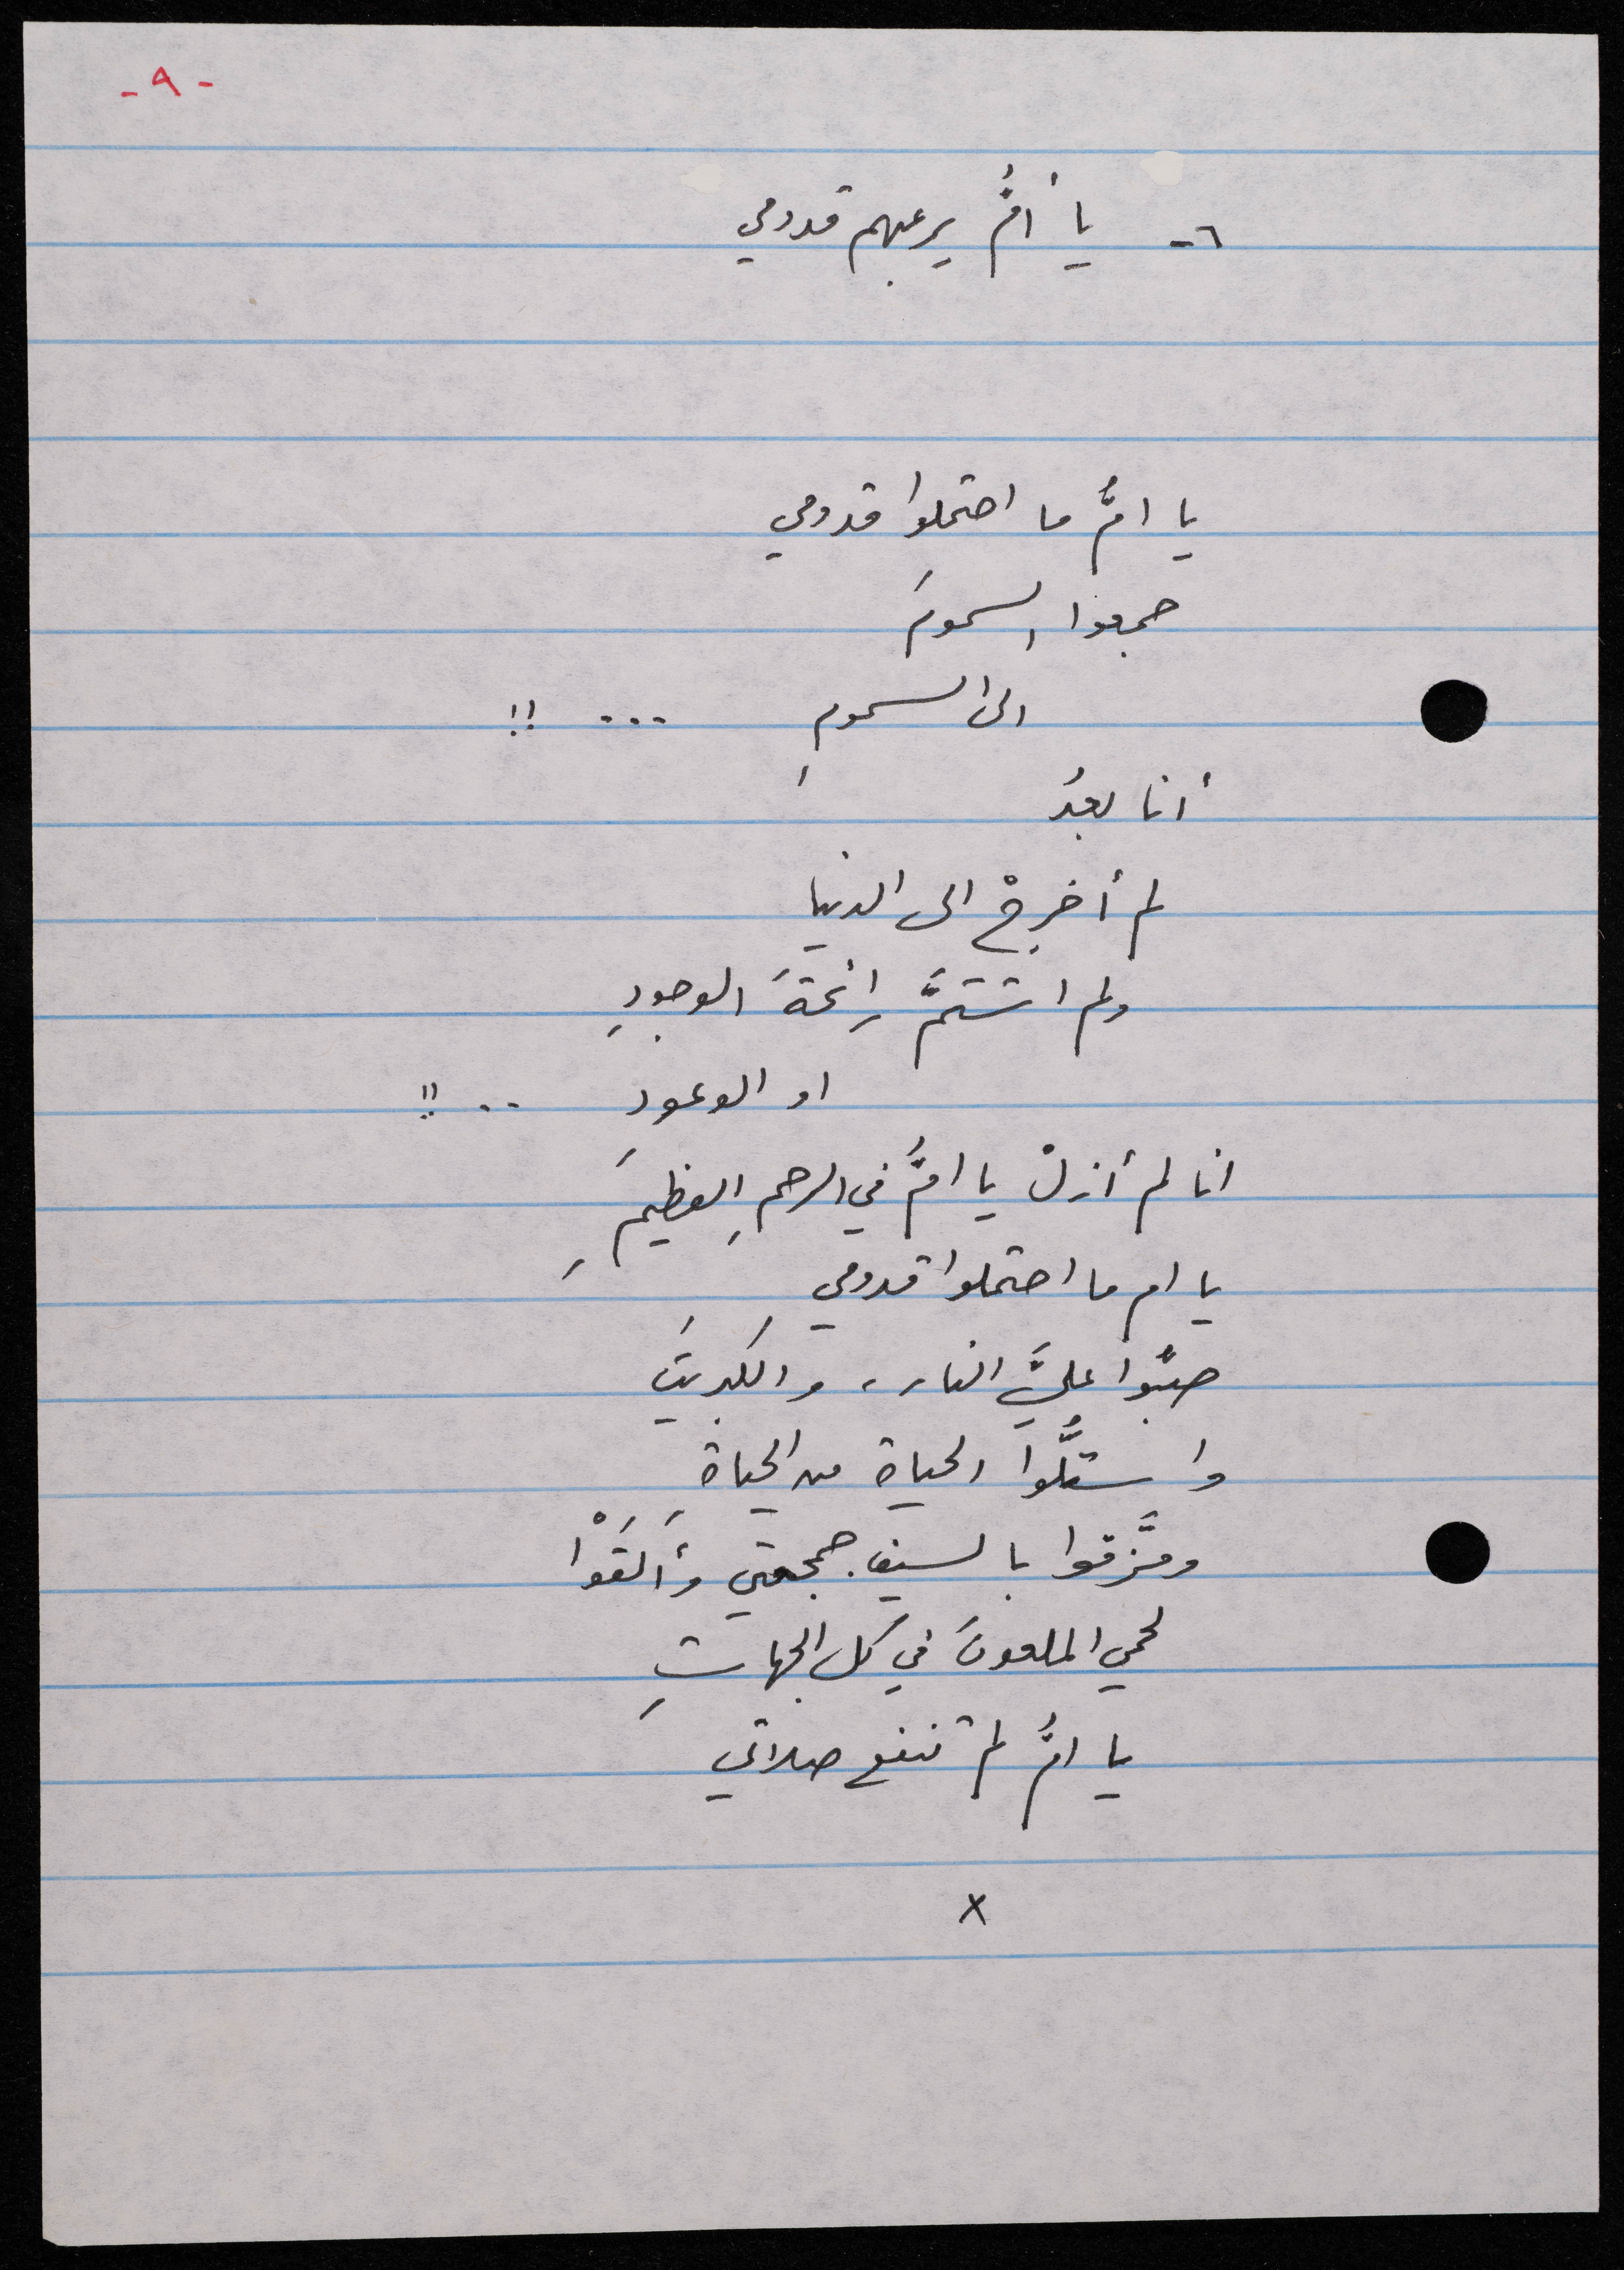 - ٩ -
٦- يا أمُّ يرعبهم قدومي
يا امُّ ما احتملوا قدومي
جمعوا السمومَ
الى السمومِ ... !!
أنا بعدُ
لم أخرجْ الى الدنيا
ولم اشتمَّ رائحةَ الوجودِ
او الوعودِ .. !!
انا لم أزلْ يا امُّ في الرحمِ العظيمِ
يا ام ما احتملوا قدومي
صبُّوا عليَّ النار، والكبريتَ
واستلُّوا الحياةَ من الحياةِ
ومزَّقوا بالسيف جمجمتي وأَلقَوْا
لحمي الملعونَ في كل الجهاتِ
يا امُّ لم تنفع صلاتي
x